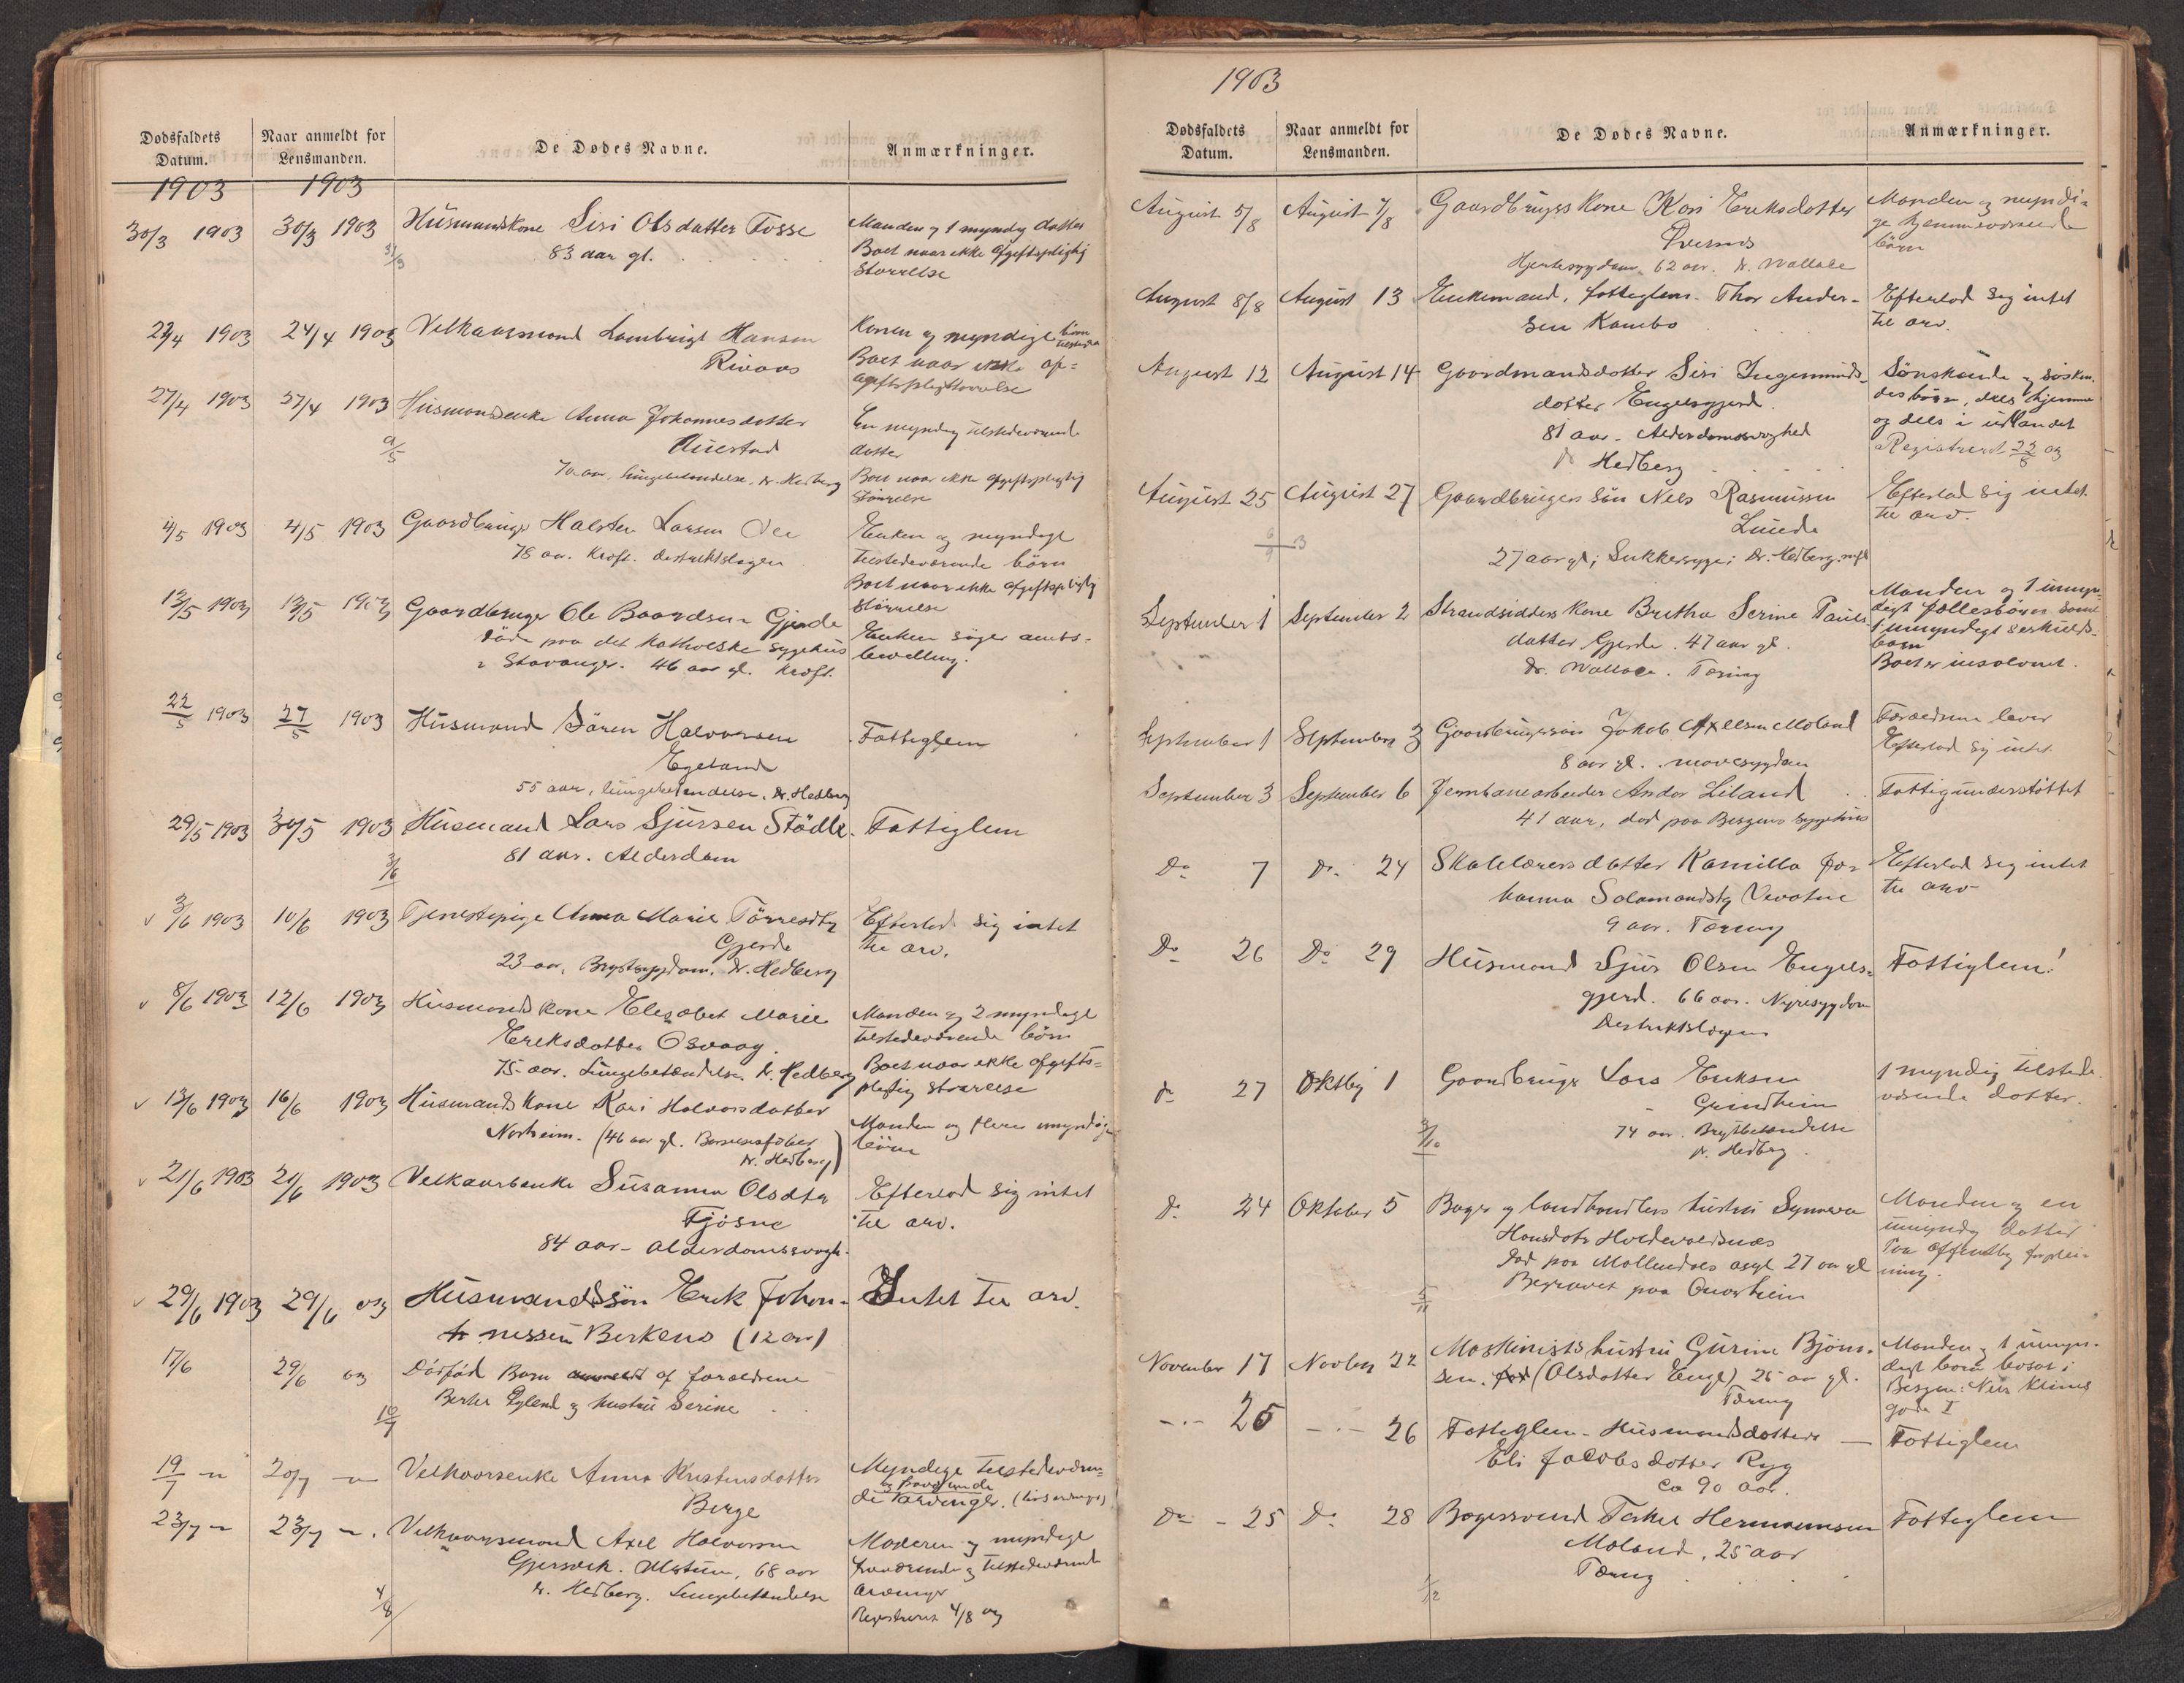 Dødsfaldets Datum.
Naar anmeldt for Lensmanden.
De Dødes Navne.
Anmærkninger.
1903 1903
30/3 1903 30/3 1903 Husmandskone Siri Olsdatter Fosse Manden og 1 myndig datter
31/3 83 aar gl. Boet naar ikke afgiftspligtig
størrelse
24/4 1903 Velkaarsmand Lambrigt Hansen Konen og myndige børn
Rivaas Boet naar ikke af=
giftspligtstørrelse
27/4 1903 27/4 1903 Husmandsenke Anna Johannesdatter En myndig tilstedeværende
datter
9/5
70 aar, lungebetændelse, dr. Hedberg Boet naar ikke afgiftspligtig
størrelse
4/5 1903 4/5 1903 Gaardbruger Halsten Larsen Øen Enken og myndige
78 aar. Kræft. distriktslægen tilstedeværende børn
Boet naar ikke afgiftspligtig
størrelse
13/5 1903 13/5 1903 Gaardbruger Ole Baardsen Gjerde
døde paa det katholske sygehus Enken søger amts-
i Stavanger. 46 aar gl. Kræft. bevilling.
22/5 1903 27/5 1903 Husmand Søren Halvorsen Fattiglem
Egeland
55 aar, lungebetændelse, dr. Hedberg
29/5 1903 30/5 1903 Husmand Lars Sjursen Stødle Fattiglem
3/6 81 aar. Alderdom
3/6 1903 10/6 1903 Tjenestepige Anna Marie Tørresdtr Efterlod sig intet
Gjerde til arv.
23 aar, Brystsygdom, dr. Hedberg
8/6 1903 12/6 1903 Husmandskone Elisabet Marie Manden og 2 myndige
Eriksdatter Osvaag. tilstedeværende børn
75 aar. Lungebetændelse. dr. Hedberg Boet naar ikke afgifts=
pligtig størrelse
13/6 1903 16/6 1903 Husmandskone Kari Halvorsdatter
Norheim. (46 aar gl. Barselsfeber Manden og flere umyndige
dr. Hedberg) børn
21/6 1903 21/6 1903 Velkaarsenke Susanna Olsdtr Efterlod sig intet
Tjøsne til arv.
84 aar - alderdomssvagh.
29/6 1903 29/6 03 Husmandssøn Erik Johan- Intet til arv.
nessen Berkenes (12 aar)
17/6 29/6 03 Dødfød Barn anmeldt af forældrene
10/7 Berter Øglend og hustru Serine
19/7 -"- 20/7 -"- Velkaarsenke Anna Kristensdatter Myndige tilstedeværen=
og fraværende
Berge de arvinger. (livsarvinger)
23/7 -"- 23/7 -"- Velkaarsmand Axel Halvorsen Moderen og myndige
Gjersvik. Ølstun, 68 aar fraværende og tilstedeværende
dr. Hedberg. Lungebetændelse arvinger
4/8 Registreret 4/8 03
1903
Dødsfaldets Datum.
Naar anmeldt for Lensmanden.
De Dødes Navne.
Anmærkninger.
August 5/8 August 7/8 Gaardbrugerskone Kari Eriksdatter Manden og myndi-
ge hjemmeværende
børn
Hjertesygdom, 62 aar. dr. Wallace
August 8/8 August 13 Enkemand, fattiglem. Thor Ander- Efterlod sig intet
sen Kambo til arv.
August 12 August 14 Gaardmandsdatter Siri Ingemunds- Søskende og søsken-
datter Engelsgjerd. desbørn, dels hjemme
81 aar. Alderdomssvaghed og dels i udlandet
dr Hedberg Registreret 22/8 03
August 25 August 27 Gaardbrugers søn Nels Rasmussen Efterlod sig intet
Lunde til arv.
27 aar gl; Sukkersyge; Dr. Hedberg
September 1 September 2 Strandsidderskone Brita Serine Pauls- Manden og 1 umyn-
digt fællesbarn samt
datter Gjerde. 47 aar gl. 1 umyndigt særkulds-
barn
dr. Wallace. Tæring Boet er insolvent.
September 1 September 3 Gaardbrugersøn Jakob Axelsen Moland Forældrene lever
8 aar gl. mavesygdom Efterlod sig intet
September 3 September 6 Jernbanearbeider Andor Liland Fattigunderstøttet
41 aar, død paa Bergens sygehus
Do 7 Do 24 Skolelærers datter Kamilla Jo- Efterlod sig intet
hanna Salamonsdtr Vevatne til arv
9 aar. Tæring
Do 26 Do 29 Husmand Sjur Olsen Engels- Fattiglem!
gjerd. 66 aar. Nyresygdom
Distriktslægen
do 27 Oktbr 1 Gaardbruger Lars Eriksen 1 myndig tilstede-
Grindheim værende datter.
3/10 74 aar. Brystbetændelse
dr. Hedberg.
do 24 Oktober 5 Bager og landhandlers hustru Synneva Manden og en
Hansdotr Holdevaldsnæs umyndig datter
død paa Møllendals asyl 27 aar gl paa offentlig forplei-
Begravet paa Qvarheim ning.
5/11
November 17 Novbr 22 Maskinistshustru Gurine Bjørn- Manden og 1 umyn-
sen. (Olsdatter Enge) 26 aar gl. digt barn bosat i
Tæring Bergen: Nils Klims
gade I
-.- 26 -.- 26 Fattiglem - Husmandsdatter - Fattiglem
Eli Jakobsdatter Ryg
ca 90 aar.
Do - 25 Do 28 Bagersvend Terkel Hermannsen Fattiglem
Moland, 25 aar
Tæring